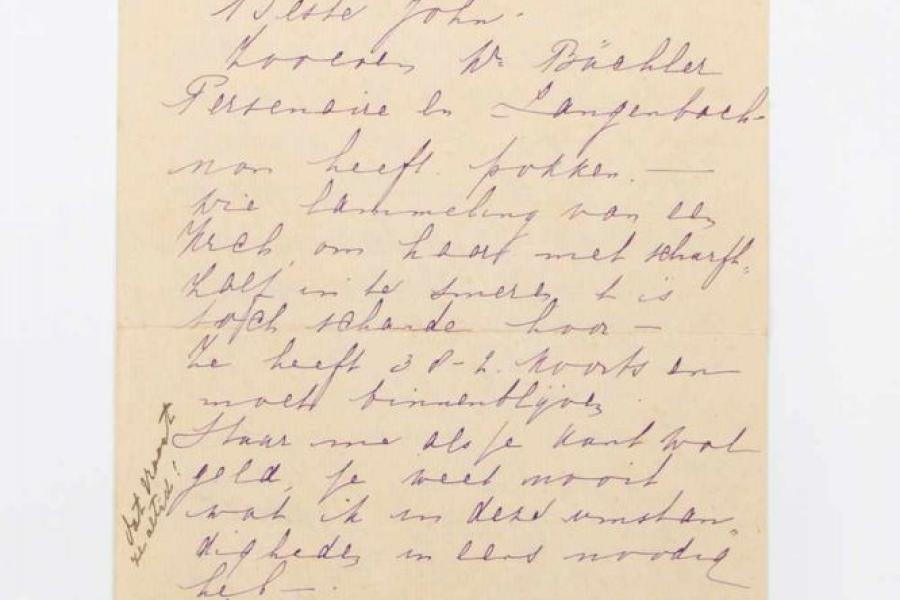 Beste John.
Zooeven Dr. Büchler
Persenaire en Langenbach-
non heeft pokken. —
Die lammeling van een
Krch om haar met schurft-
zalf in te smeren t is
toch schande hoor —
Ze heeft 38-2. koorts en
moet binnenblijven
Stuur me als je kunt wat
geld, je weet nooit
wat ik in deze omstan-
digheden in eens noodig
heb —.
dat vraagt
ze altijd!